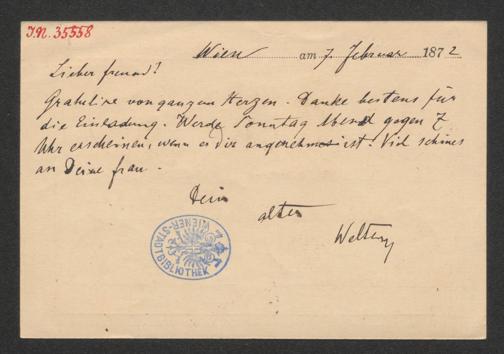 I.N. 35558
Wien am 7. Februar 1872
Lieber Freund!
Gratulire von ganzem Herzen. Danke bestens für
die Einladung. Werde Sonntag Abend gegen 7
Uhr erscheinen, wenn es dir angenehm ist. Viel schönes
an Deine Frau.
Dein
alter
WIENER-STADTBIBLIOTHEK